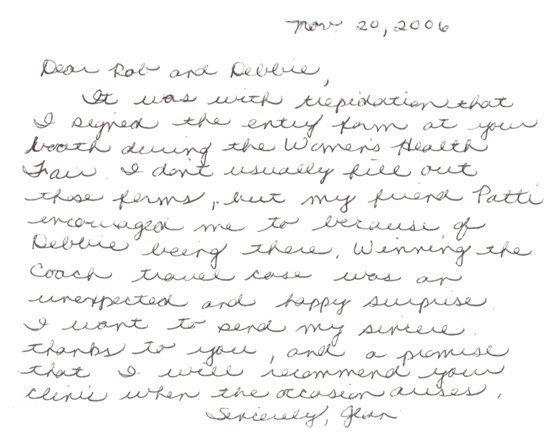 Nov 20, 2006
Dear Rob and Debbie,
It was with trepidation that
I signed the entry form at your
booth during the Women's Health
Fair. I don't usually fill out
those forms, but my friend Patti
encouraged me to because of
Debbie being there. Winning the
Coach travel case was an
unexpected and happy surprise.
I want to send my sincere
thanks to you, and a promise
that I will recommend your
clinic when the occasion arises.
Sincerely, Jean